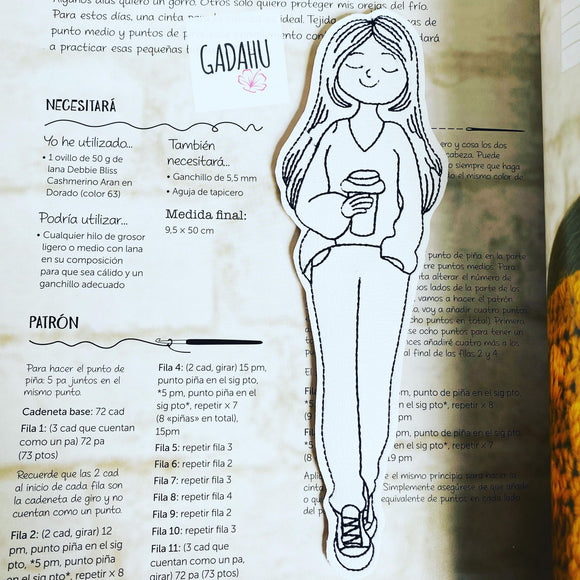 Algunos días quiero un gorro. Otros solo quiero proteger mis orejas del frío.
Para estos días, una cinta para
ideal. Tejido
punto medio y puntos de
a practicar esas pequeñas t
GADAHU
NECESITARÁ
Yo he utilizado...
• 1 ovillo de 50 g de
lana Debbie Bliss
Cashmerino Aran en
Dorado (color 63)
Podría utilizar...
• Cualquier hilo de grosor
ligero o medio con lana
en su composición
para que sea cálido y un
ganchillo adecuado
También
necesitará...
• Ganchillo de 5,5 mm
• Aguja de tapicero
Medida final:
9,5 x 50 cm
ero y cosa los dos
cabeza. Puede
o siempre que haga
el mismo color de
PATRÓN
Para hacer el punto de
piña: 5 pa juntos en el
mismo punto.
Cadeneta base: 72 cad
Fila 1: (3 cad que cuentan
como un pa) 72 pa
(73 ptos)
Recuerde que las 2 cad
al inicio de cada fila son
la cadeneta de giro y no
cuentan como un punto.
Fila 2: (2 cad, girar) 12
pm, punto piña en el sig
pto, *5 pm, punto piña
en el sig pto*, repetir x
Fila 4: (2 cad, girar) 15 pm,
punto piña en el sig pto,
*5 pm, punto piña en el
sig pto*, repetir x 7
(8 «piñas» en total),
15pm
Fila 5: repetir fila 3
Fila 6: repetir fila 2
Fila 7: repetir fila 3
Fila 8: repetir fila 4
Fila 9: repetir fila 3
Fila 10: repetir fila 2
Fila 11: (3 cad que
cuentan como un pa)
72 pa (73 ptos)
punto de piña en la parte
tre puntos medios. Para
ta alterar el número de
os lados de la parte de los
, vamos a hacer el patrón
, voy a añadir cuatro puntos
ocho puntos en total). Primero
se ocho puntos para tener un
nces añadiré cuatro más a los
al final de las filas 2 y 4.
pm, punto piña en el sig pto,
en el sig pto*, repetir x 8
pm
pm, punto piña en el sig pto,
en el sig pto*, repetir x 9
19 pm
e el mismo principio para hacer la
Simplemente asegúrese de que añade
equivalente de puntos en cada lado